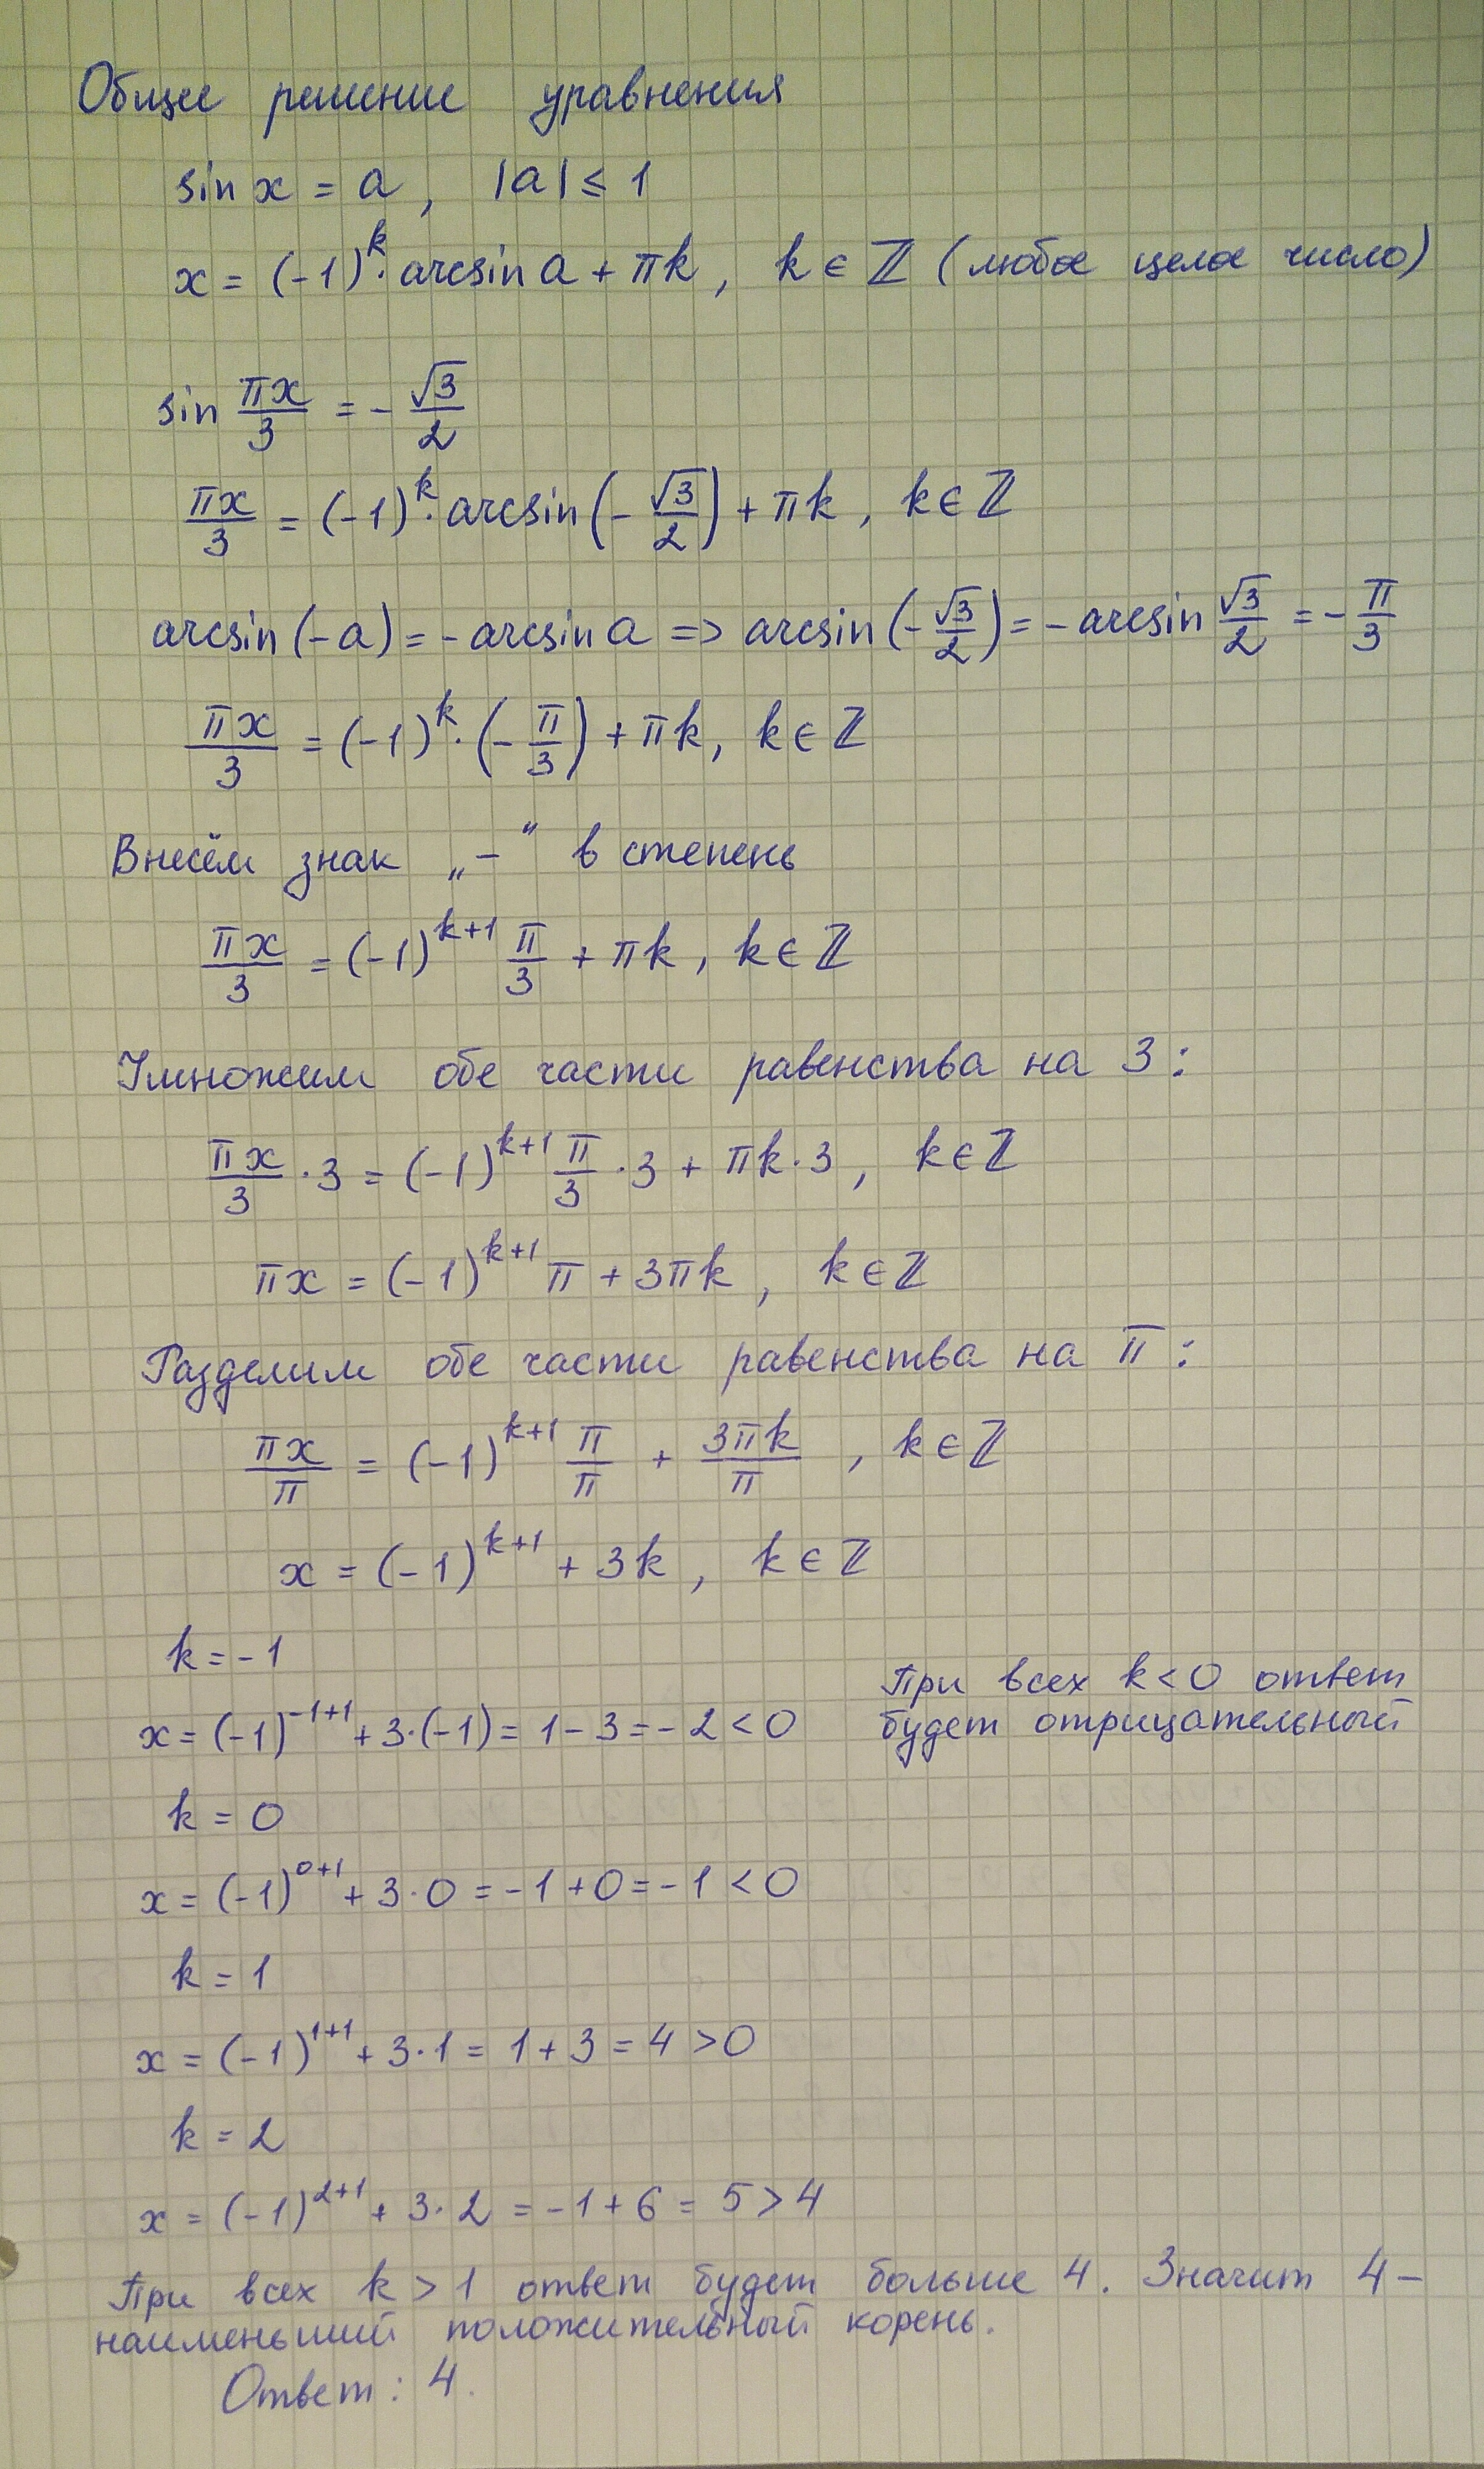 Общее решение уравнения
sin x = a, |a| ≤ 1
x = (-1)^k · arcsin a + πk, k ∈ ℤ (любое целое число)
sin πx/3 = - √3/2
πx/3 = (-1)^k · arcsin(- √3/2) + πk, k ∈ ℤ
arcsin(-a) = - arcsin a => arcsin(- √3/2) = - arcsin √3/2 = - π/3
πx/3 = (-1)^k · (- π/3) + πk, k ∈ ℤ
Внесём знак „-“ в степень
πx/3 = (-1)^(k+1) π/3 + πk, k ∈ ℤ
Умножим обе части равенства на 3:
πx/3 · 3 = (-1)^(k+1) π/3 · 3 + πk · 3, k ∈ ℤ
πx = (-1)^(k+1) π + 3πk, k ∈ ℤ
Разделим обе части равенства на π:
πx/π = (-1)^(k+1) π/π + 3πk/π, k ∈ ℤ
x = (-1)^(k+1) + 3k, k ∈ ℤ
k = -1
x = (-1)^(-1+1) + 3·(-1) = 1 - 3 = -2 < 0
При всех k < 0 ответ
будет отрицательный
k = 0
x = (-1)^(0+1) + 3·0 = -1 + 0 = -1 < 0
k = 1
x = (-1)^(1+1) + 3·1 = 1 + 3 = 4 > 0
k = 2
x = (-1)^(2+1) + 3·2 = -1 + 6 = 5 > 4
При всех k > 1 ответ будет больше 4. Значит 4 –
наименьший положительный корень.
Ответ: 4.